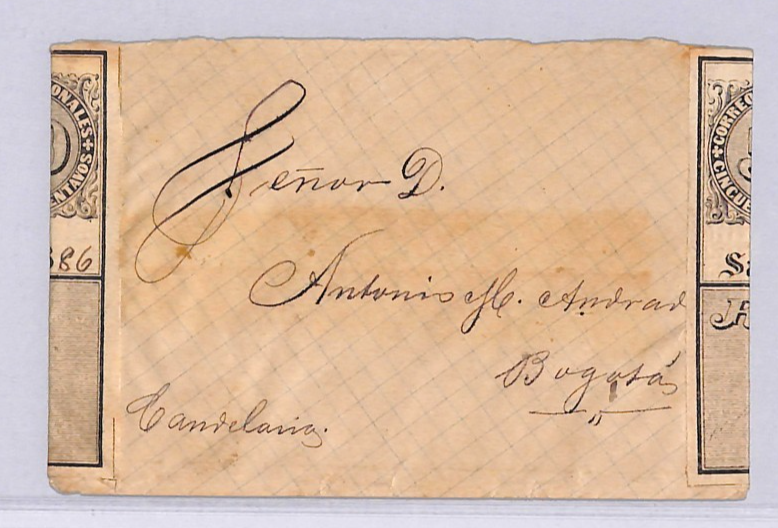 Señor D.
Antonio M. Andrad
Bogotá
Candelaria
ONALES
0
ENTAVOS
886
CORREO
CINCUE
Sa